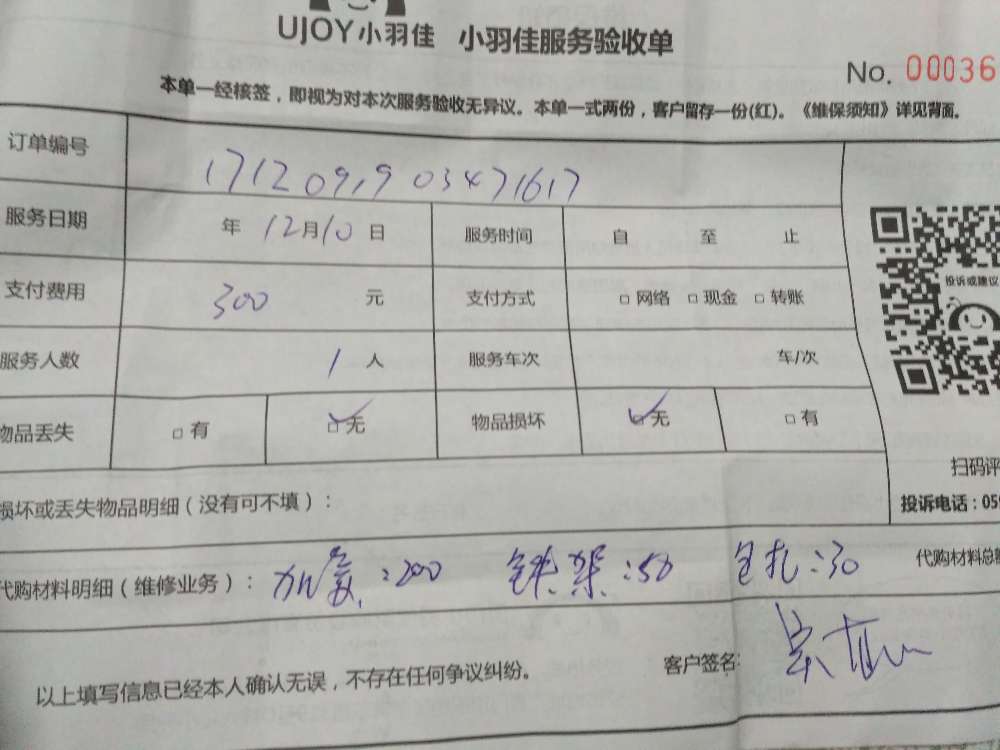 UJOY小羽佳 小羽佳服务验收单
No. 00036
本单一经核签，即视为对本次服务验收无异议。本单一式两份，客户留存一份(红)。《维保须知》详见背面。
订单编号 171209,903471617
服务日期 年 12月10 日 服务时间 自 至 止
支付费用 300 元 支付方式 □网络 □现金 □转账
投诉或建议
服务人数 1 人 服务车次 车/次
物品丢失 □有 □无 物品损坏 □无 □有
扫码评
损坏或丢失物品明细（没有可不填）：
投诉电话：059
代购材料明细（维修业务）： 加氟：200 铁架：50 包扎：30 代购材料总额
以上填写信息已经本人确认无误，不存在任何争议纠纷。 客户签名：